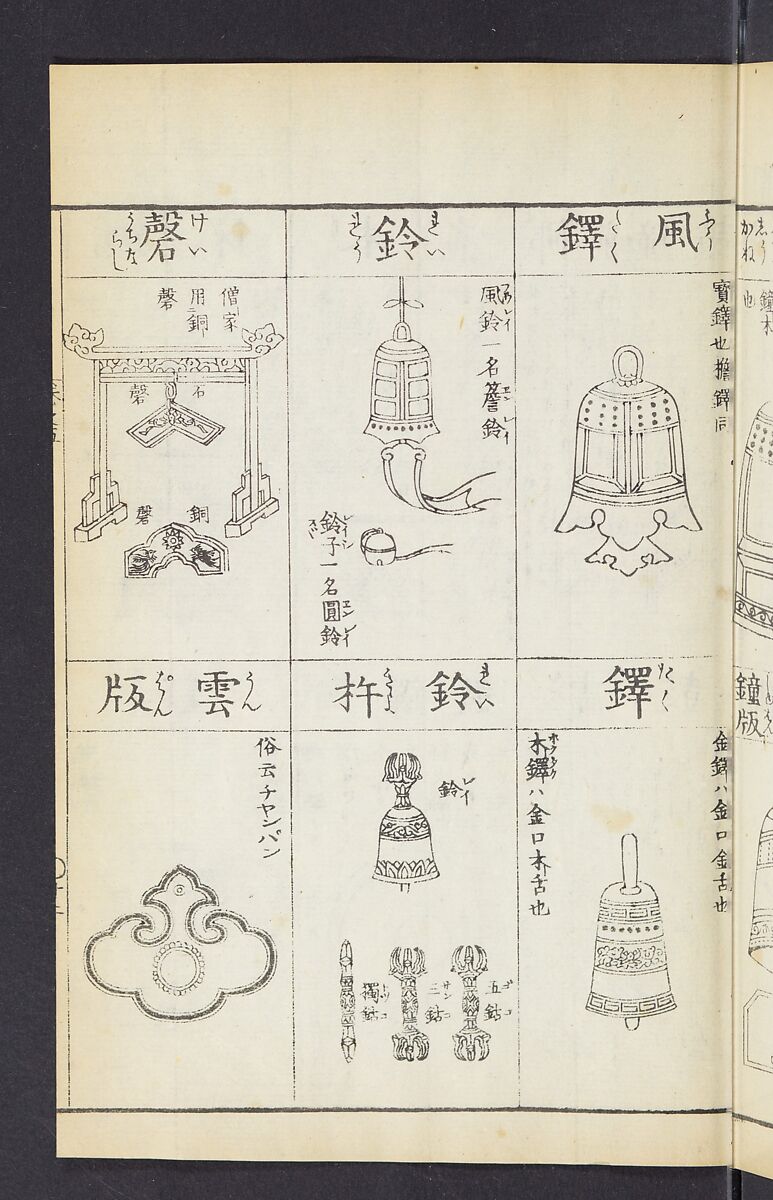 風鐸
たく
寳鐸也擔鐸同
鈴
れい
れう
風鈴一名簷鈴
レイ
エンレイ
鈴子一名圓鈴
レイシ
エンレイ
磬
けい
うちならし
僧家
用銅
磬
石
磬
銅
磬
鐸
たく
金鐸ハ金口金舌也
木鐸ハ金口木舌也
ボクタク
鈴杵
れい
鈴
レイ
五鈷
ゴコ
三鈷
サンコ
獨鈷
雲版
うん
ぱん
俗云チヤンパン
鐘
也
鐘版